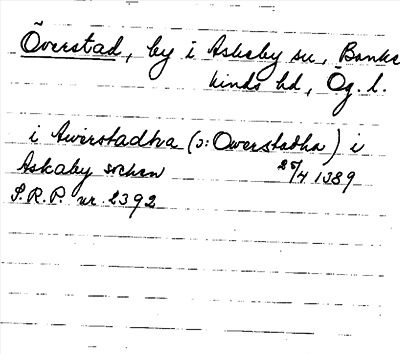 Överstad, by i Askeby sn, Banke
kinds hd, Ög. l.
i Awirstadha (ɔ: Owerstadha) i
Askaby sochen 25/4 1389
S.R.P. nr 2392